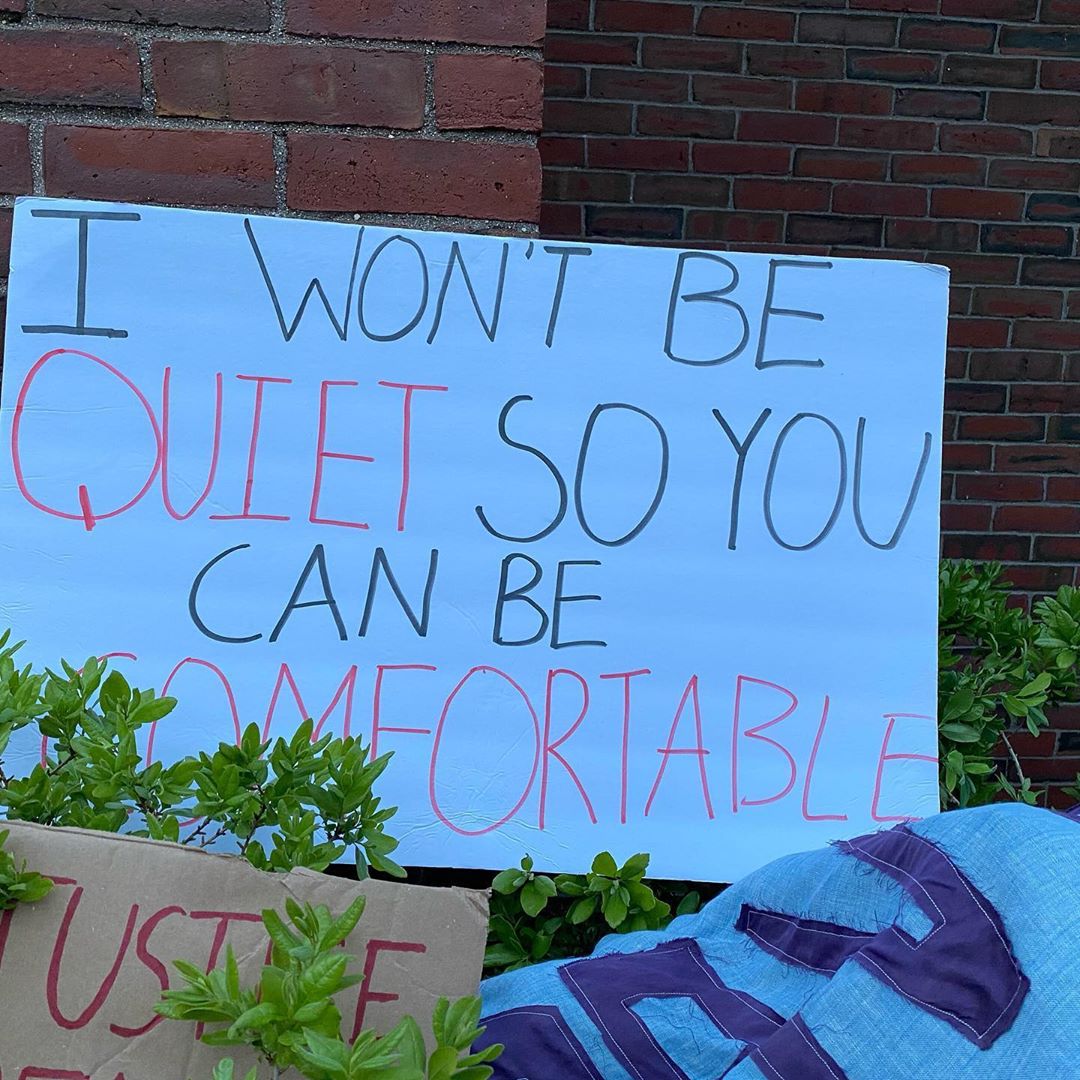 I WON'T BE
QUIET SO YOU
CAN BE
COMFORTABLE
JUSTICE